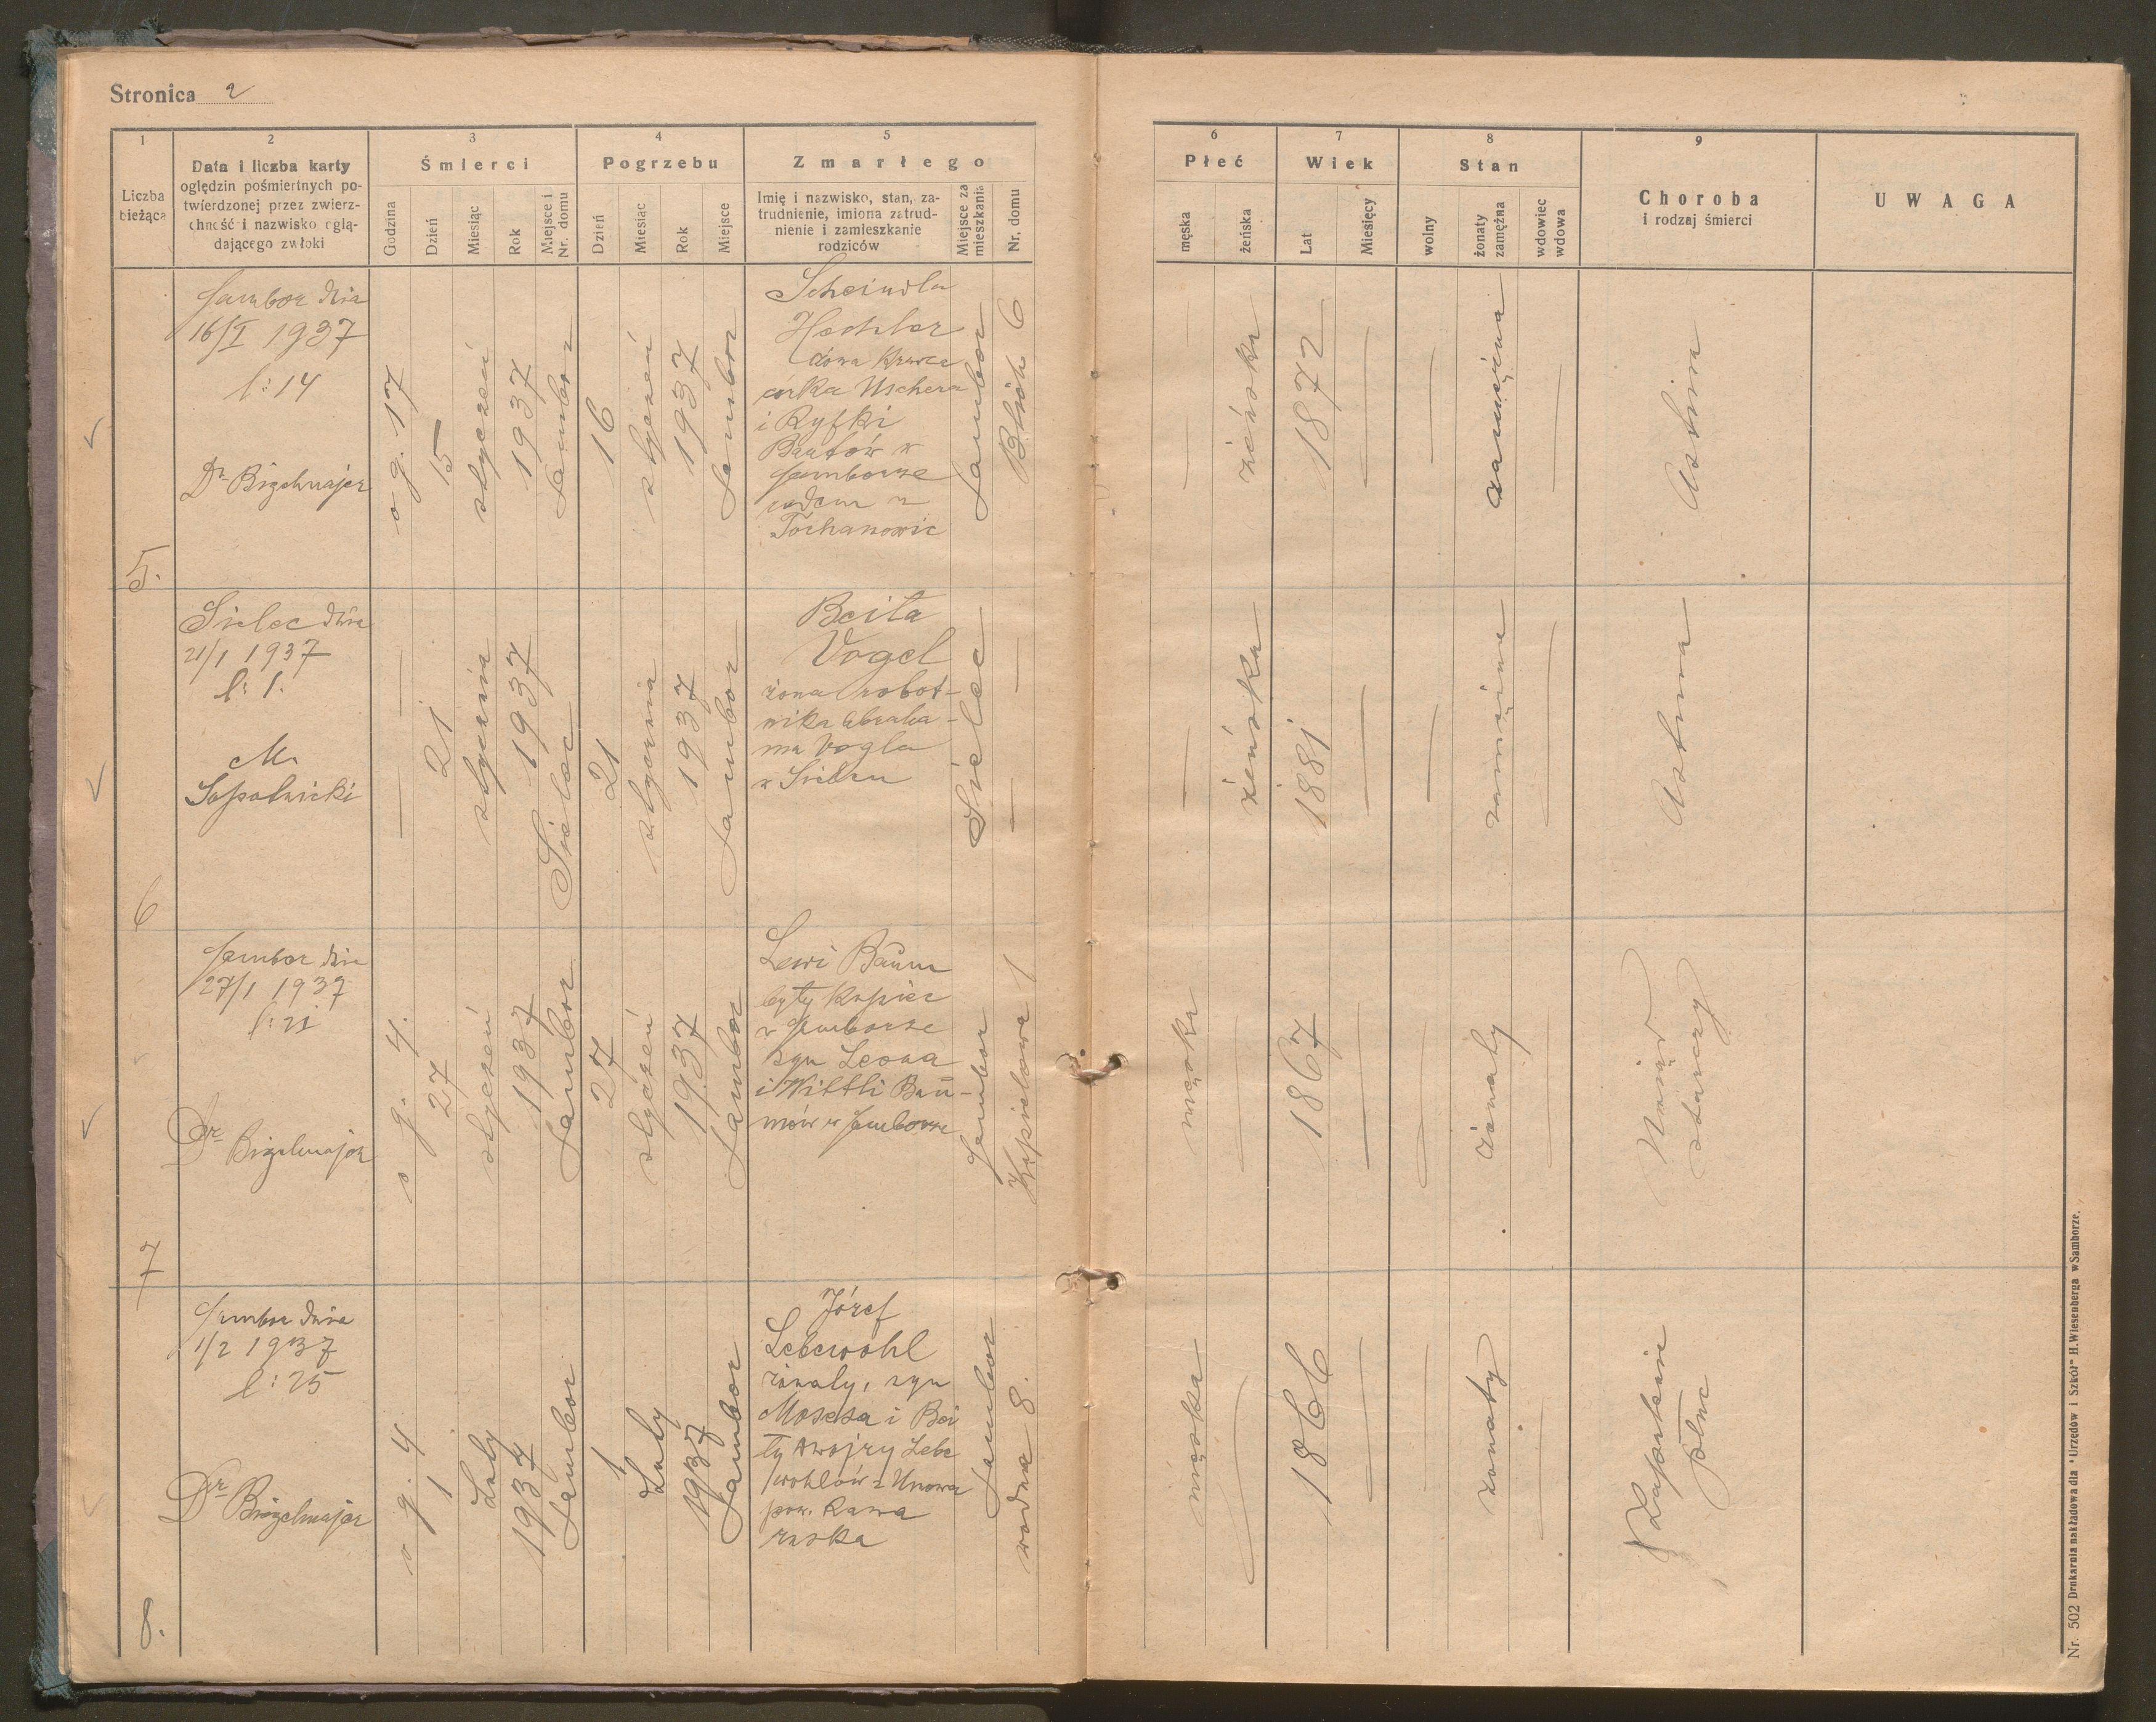 Stronica 2
1
Liczba
bieżąca
2
Data i liczba karty
oględzin pośmiertnych po-
twierdzonej przez zwierz-
chność i nazwisko oglą-
dającego zwłoki
3
Śmierci
Godzina
Dzień
Miesiąc
Rok
Miejsce i
Nr. domu
4
Pogrzebu
Dzień
Miesiąc
Rok
Miejsce
5
Zmarłego
Imię i nazwisko, stan, za-
trudnienie, imiona zatrud-
nienie i zamieszkanie
rodziców
Miejsce za
mieszkania
Nr. domu
6
Płeć
męska
żeńska
7
Wiek
Lat
Miesięcy
8
Stan
wolny
żonaty
zamężna
wdowiec
wdowa
9
Choroba
i rodzaj śmierci
UWAGA
5.
Sambor dnia
16/I 1937
l: 14
Dr Bigelmajer
o g. 17
15
styczeń
1937
Sambor
16
styczeń
1937
Sambor
Scheindla
Hochler
córka Uschera
i Ryfki
w
Samborze
Tochanowic
Sambor
Blich 6
—
żeńska
1872
—
—
zamężna
—
Astma
6
Sielec dnia
21/1 1937
l: 1.
M.
Sopotnicki
—
21
stycznia
1937
Sielec
21
stycznia
1937
Sambor
Beila
Vogel
żona robot-
nika Abraha-
ma Vogla
w Sielcu
Sielec
—
—
żeńska
1881
—
—
zamężna
—
Astma
7
Sambor dnia
27/1 1937
l: 21
Dr Bigelmajer
o g. 4.
27
styczeń
1937
Sambor
27
styczeń
1937
Sambor
Lewi Baŭm
były kupiec
w Samborze
syn Leona
i Wittli Baŭ-
mów w Samborze
Sambor
Kąpielowa 1
męska
—
1867
—
—
żonaty
—
Uwiąd
starczy
8.
Sambor dnia
1/2 1937
l: 25
Dr Bigelmajer
o g. 4
1
Luty
1937
Sambor
1
Luty
1937
Sambor
Józef
Lebewohl
żonaty, syn
Mosesa i Bei
ły Dwojry Lebe
wohlów z Unowa
pow. Rawa
ruska
Sambor
wodna 8.
męska
—
1866
—
—
żonaty
—
Zapalenie
płuc
Nr. 502 Drukarnia nakładowa dla "Urzędów i Szkół" H. Wiesenberga w Samborze.